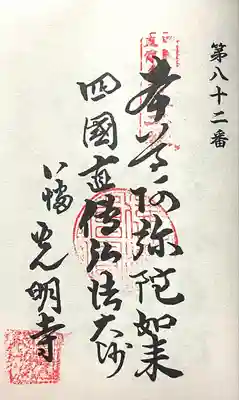 第八十二番
本尊阿弥陀如来
四國直傳弘法大师
八幡
光明寺